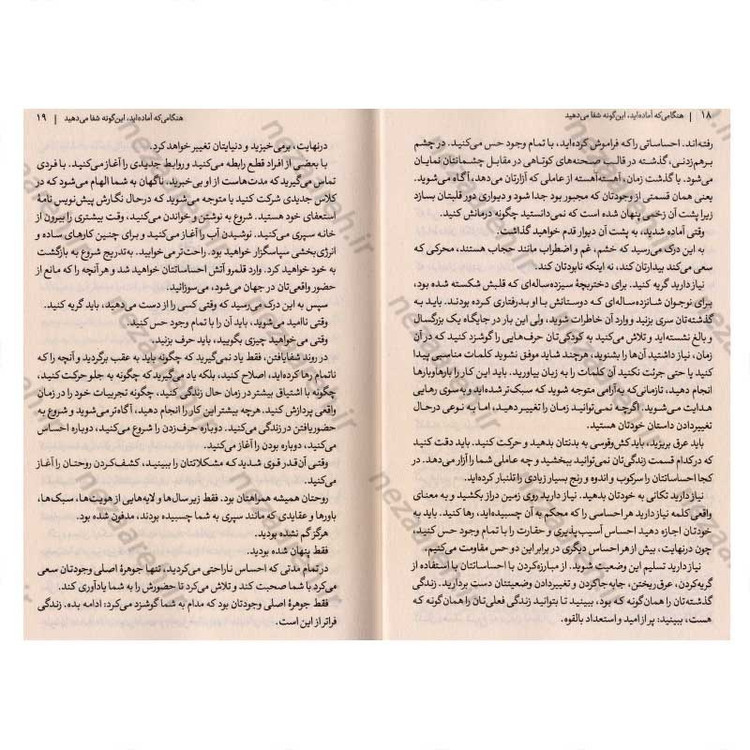 ۱۸ | هنگامی‌که آماده‌اید، این‌گونه شفا می‌دهید
رفته‌اند. احساساتی را که فراموش کرده‌اید، با تمام وجود حس می‌کنید. در چشم
برهم‌زدنی، گذشته در قالب صحنه‌های کوتاهی در مقابل چشمانتان نمایان
می‌شود. با گذشت زمان، آهسته‌آهسته از عاملی که آزارتان می‌دهد، آگاه می‌شوید.
یعنی همان قسمتی از وجودتان که مجبور بود جدا شود و دیواری دور قلبتان بسازد
زیرا پشت آن زخمی پنهان شده است که نمی‌دانستید چگونه درمانش کنید.
وقتی آماده شدید، به پشت آن دیوار قدم خواهید گذاشت.
به این درک می‌رسید که خشم، غم و اضطراب مانند حجاب هستند، محرکی که
سعی می‌کند بیدارتان کند، نه اینکه نابودتان کند.
نیاز دارید گریه کنید. برای دختربچهٔ سیزده‌ساله‌ای که قلبش شکسته شده بود،
برای نوجوان شانزده‌ساله‌ای که دوستانش با او بدرفتاری کرده بودند. باید به
گذشته‌تان سری بزنید و وارد آن خاطرات شوید، ولی این بار در جایگاه یک بزرگسال
و بالغ نشسته‌اید و تلاش می‌کنید به کودکی‌تان حرف‌هایی را گوشزد کنید که در آن
زمان، نیاز داشتید آن‌ها را بشنوید، هرچند شاید موفق نشوید کلمات مناسبی پیدا
کنید یا حتی جرئت نکنید آن کلمات را به زبان بیاورید. باید این کار را بارهاوبارها
انجام دهید، تا زمانی‌که به‌آرامی متوجه شوید که سبک‌تر شده‌اید و به‌سوی رهایی
هدایت می‌شوید. اگرچه نمی‌توانید زمان را تغییر دهید، اما به نوعی درحال
تغییردادن داستان خودتان هستید.
باید عرق بریزید، باید کش‌وقوسی به بدنتان بدهید و حرکت کنید. باید دقت کنید
که در کدام قسمت زندگی‌تان نمی‌توانید ببخشید و چه عاملی شما را آزار می‌دهد. در
کجا احساساتتان را سرکوب و اندوه و رنج بسیار زیادی را تلنبار کرده‌اید.
نیاز دارید تکانی به خودتان بدهید. نیاز دارید روی زمین دراز بکشید و به معنای
واقعی کلمه نیاز دارید هر احساسی را که محکم به آن چسبیده‌اید، رها کنید. باید به
خودتان اجازه دهید احساس آسیب‌پذیری و حقارت را با تمام وجود حس کنید،
چون درنهایت، بیش از هر احساس دیگری در برابر این دو حس مقاومت می‌کنیم.
نیاز دارید تسلیم این وضعیت شوید. از مبارزه‌کردن با احساساتتان با استفاده از
گریه‌کردن، عرق‌ریختن، جابه‌جاکردن و تغییردادن وضعیتتان دست بردارید. زندگی
گذشته‌تان را همان‌گونه که بود، ببینید تا بتوانید زندگی فعلی‌تان را همان‌گونه که
هست، ببینید: پر از امید و استعداد بالقوه.
هنگامی‌که آماده‌اید، این‌گونه شفا می‌دهید | ۱۹
درنهایت، برمی‌خیزید و دنیایتان تغییر خواهد کرد.
با بعضی از افراد قطع رابطه می‌کنید و روابط جدیدی را آغاز می‌کنید. با فردی
تماس می‌گیرید که مدت‌هاست از او بی‌خبرید. ناگهان به شما الهام می‌شود که در
کلاس جدیدی شرکت کنید یا متوجه می‌شوید که درحال نگارش پیش‌نویس نامهٔ
استعفای خود هستید. شروع به نوشتن و خواندن می‌کنید، وقت بیشتری را بیرون از
خانه سپری می‌کنید. نوشیدن آب را آغاز می‌کنید و برای چنین کارهای ساده و
انرژی‌بخشی سپاسگزار خواهید بود. راحت‌تر می‌خوابید. به‌تدریج شروع به بازگشت
به خود خواهید کرد. وارد قلمرو آتش احساساتتان خواهید شد و هرآنچه را که مانع از
حضور واقعی‌تان در جهان می‌شود، می‌سوزانید.
سپس به این درک می‌رسید که وقتی کسی را از دست می‌دهید، باید گریه کنید.
وقتی ناامید می‌شوید، باید آن را با تمام وجود حس کنید.
وقتی می‌خواهید چیزی بگویید، باید حرف بزنید.
در روند شفایافتن، فقط یاد نمی‌گیرید که چگونه باید به عقب برگردید و آنچه را که
ناتمام رها کرده‌اید، اصلاح کنید، بلکه یاد می‌گیرید که چگونه به جلو حرکت کنید.
چگونه با اشتیاق بیشتر در زمان حال زندگی کنید، چگونه تجربیات خود را در زمان
واقعی پردازش کنید. هرچه بیشتر این کار را انجام دهید، آگاه‌تر می‌شوید و شروع به
حضوریافتن در زندگی می‌کنید. دوباره حرف‌زدن را شروع می‌کنید، دوباره احساس
می‌کنید، دوباره بودن را آغاز می‌کنید.
وقتی آن‌قدر قوی شدید که مشکلاتتان را ببینید، کشف‌کردن روحتان را آغاز
می‌کنید.
روحتان همیشه همراهتان بود. فقط زیر سال‌ها و لایه‌هایی از هویت‌ها، سبک‌ها،
باورها و عقایدی که مانند سپری به شما چسبیده بودند، مدفون شده بود.
هرگز گم نشده بودید.
فقط پنهان شده بودید.
در تمام مدتی که احساس ناراحتی می‌کردید، تنها جوهرهٔ اصلی وجودتان سعی
می‌کرد با شما صحبت کند و تلاش می‌کرد تا حضورش را به شما یادآوری کند.
فقط جوهرهٔ اصلی وجودتان بود که مدام به شما گوشزد می‌کرد: ادامه بده. زندگی
فراتر از این است.
nezaareh.ir